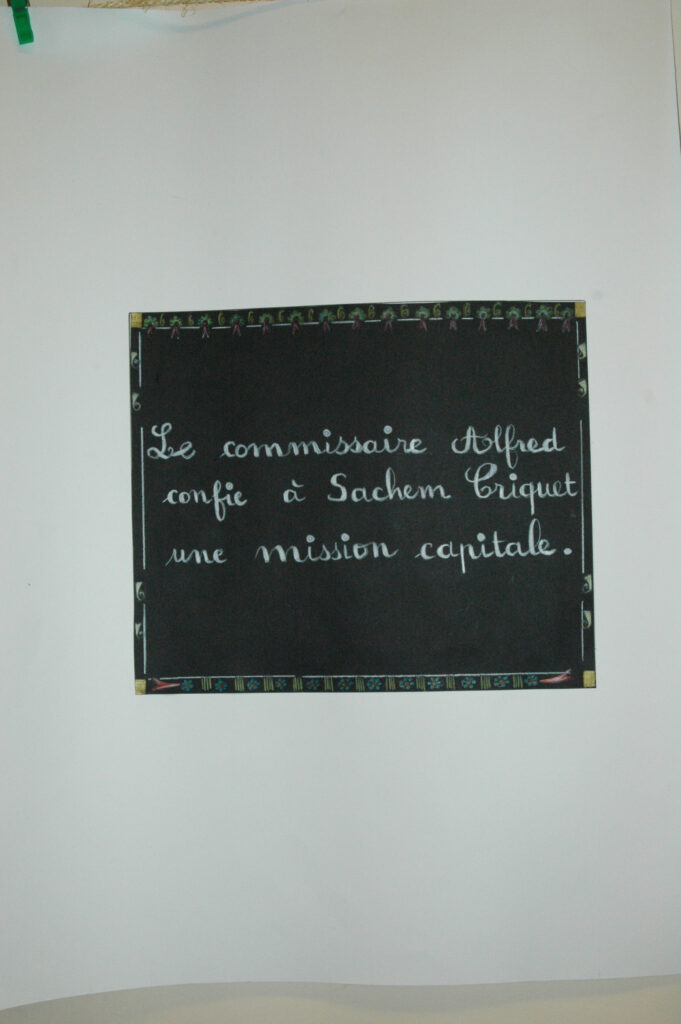 Le commissaire Alfred
confie à Sachem Criquet
une mission capitale.